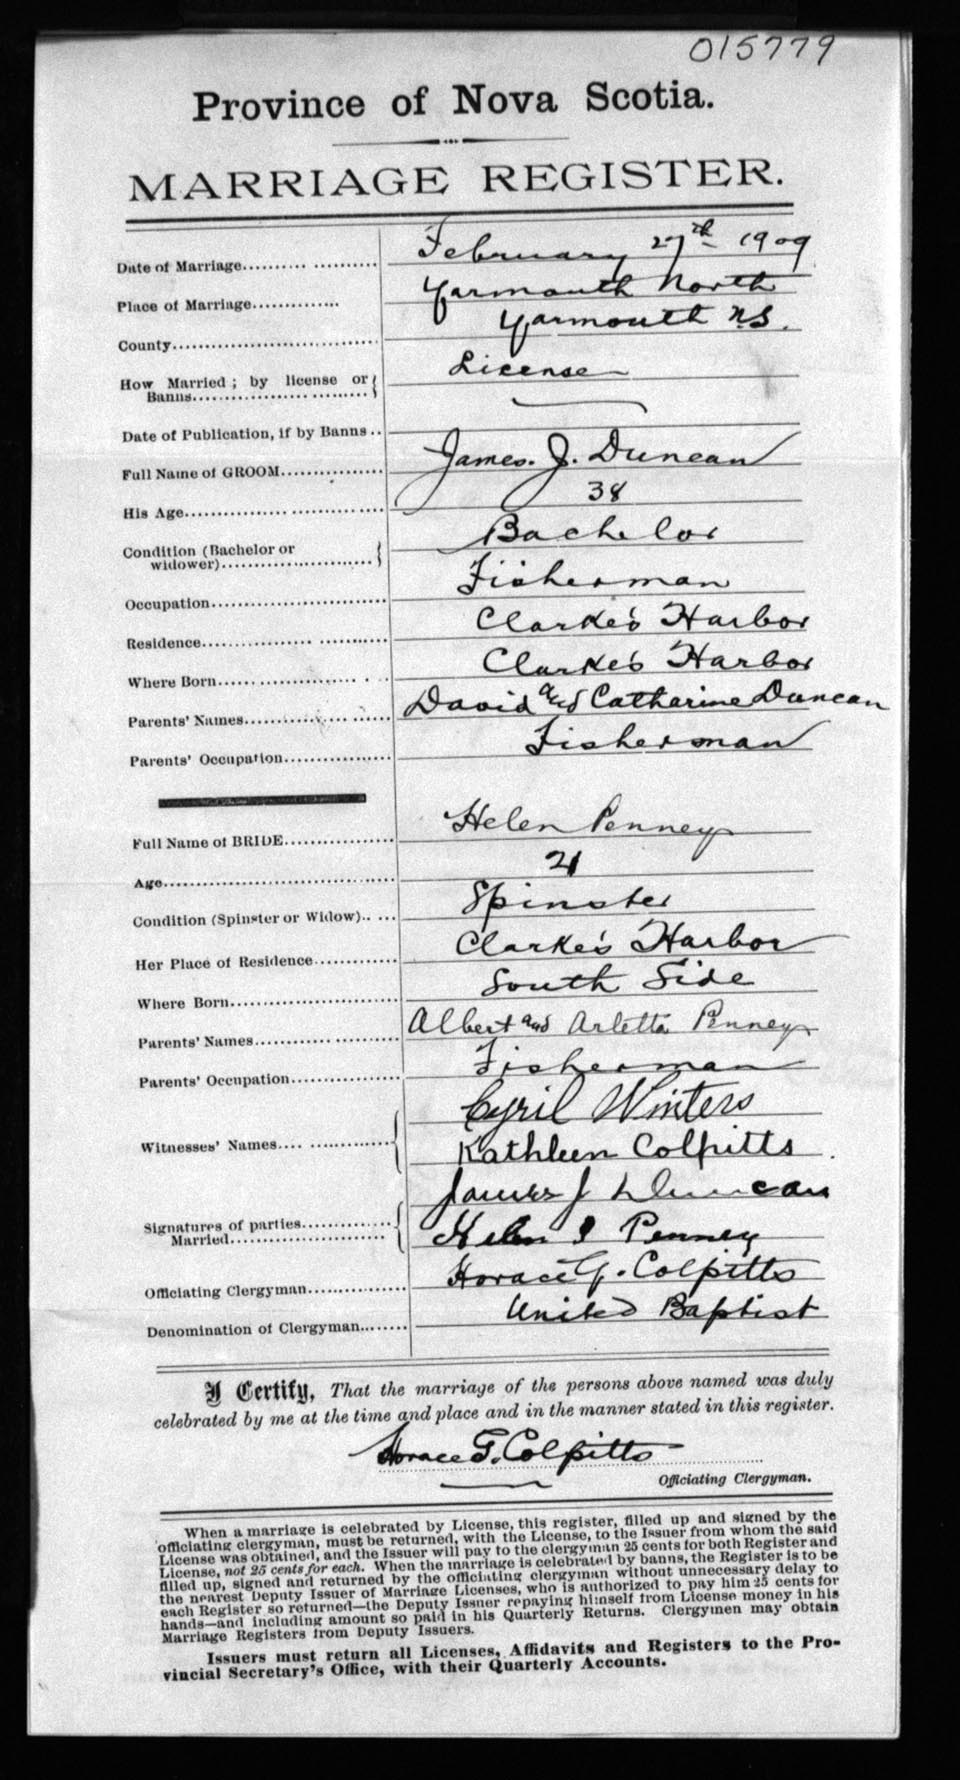 015779
Province of Nova Scotia.
MARRIAGE REGISTER.
Date of Marriage.......... February 27th 1909
Place of Marriage............. Yarmouth North
County.............................. Yarmouth N.S.
How Married ; by license or Banns.............................. License
Date of Publication, if by Banns ..
Full Name of GROOM............... James. J. Duncan
His Age.............................. 38
Condition (Bachelor or widower).............................. Bachelor
Occupation.............................. Fisherman
Residence.............................. Clarke's Harbor
Where Born.............................. Clarke's Harbor
Parents' Names.................... David and Catharine Duncan
Parents' Occupation................ Fisherman
Full Name of BRIDE................ Helen Penney
Age................................... 21
Condition (Spinster or Widow)..... Spinster
Her Place of Residence............ Clarke's Harbor
Where Born........................ South Side
Parents' Names.................... Albert and Arletta Penney
Parents' Occupation............... Fisherman
Witnesses' Names.................. Cyril Winters
Kathleen Colpitts
Signatures of parties Married.................. James J Duncan
Helen I Penney
Officiating Clergyman.............. Horace G. Colpitts
Denomination of Clergyman........ United Baptist
I Certify, That the marriage of the persons above named was duly
celebrated by me at the time and place and in the manner stated in this register.
Horace G. Colpitts
Officiating Clergyman.
When a marriage is celebrated by License, this register, filled up and signed by the
officiating clergyman, must be returned, with the License, to the Issuer from whom the said
License was obtained, and the Issuer will pay to the clergyman 25 cents for both Register and
License, not 25 cents for each. When the marriage is celebrated by banns, the Register is to be
filled up, signed and returned by the officiating clergyman without unnecessary delay to
the nearest Deputy Issuer of Marriage Licenses, who is authorized to pay him 25 cents for
each Register so returned—the Deputy Issuer repaying himself from License money in his
hands—and including amount so paid in his Quarterly Returns. Clergymen may obtain
Marriage Registers from Deputy Issuers.
Issuers must return all Licenses, Affidavits and Registers to the Pro-
vincial Secretary's Office, with their Quarterly Accounts.